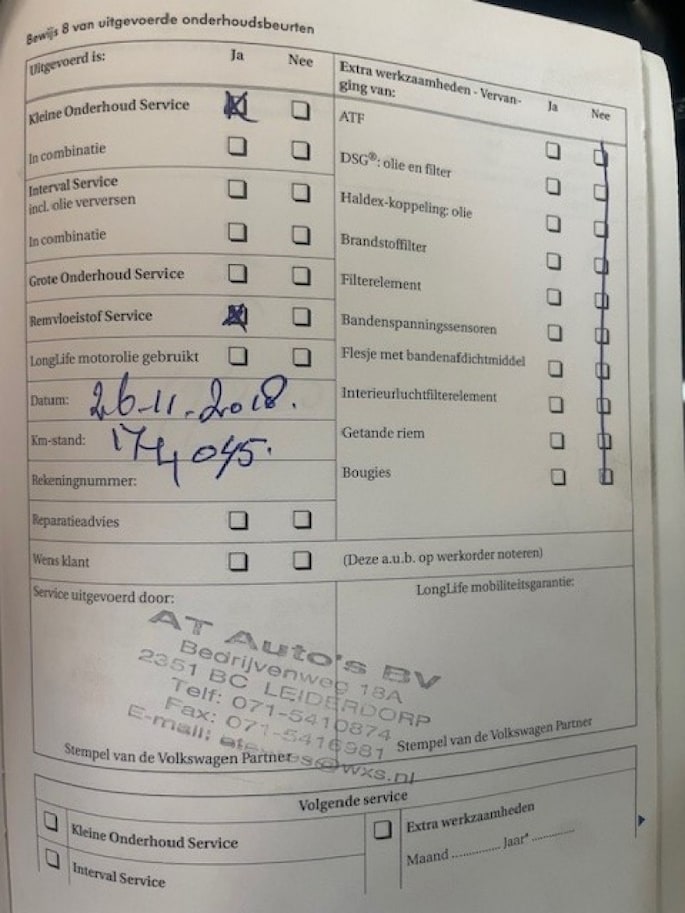 Bewijs 8 van uitgevoerde onderhoudsbeurten
Uitgevoerd is:
Ja
Nee
Kleine Onderhoud Service
In combinatie
Interval Service
incl. olie verversen
In combinatie
Grote Onderhoud Service
Remvloeistof Service
LongLife motorolie gebruikt
Datum: 26-11-2018.
Km-stand: 174,045.
Rekeningnummer:
Reparatieadvies
Wens klant
Extra werkzaamheden - Vervan-
ging van:
Ja
Nee
ATF
DSG®: olie en filter
Haldex-koppeling: olie
Brandstoffilter
Filterelement
Bandenspanningssensoren
Flesje met bandenafdichtmiddel
Interieurluchtfilterelement
Getande riem
Bougies
(Deze a.u.b. op werkorder noteren)
Service uitgevoerd door:
AT Auto's BV
Bedrijvenweg 18A
2351 BC LEIDERDORP
Telf: 071-5410874
Fax: 071-5416981
E-mail: @wxs.nl
Stempel van de Volkswagen Partner
LongLife mobiliteitsgarantie:
Stempel van de Volkswagen Partner
Volgende service
Kleine Onderhoud Service
Interval Service
Extra werkzaamheden
Maand ............ Jaar* ............